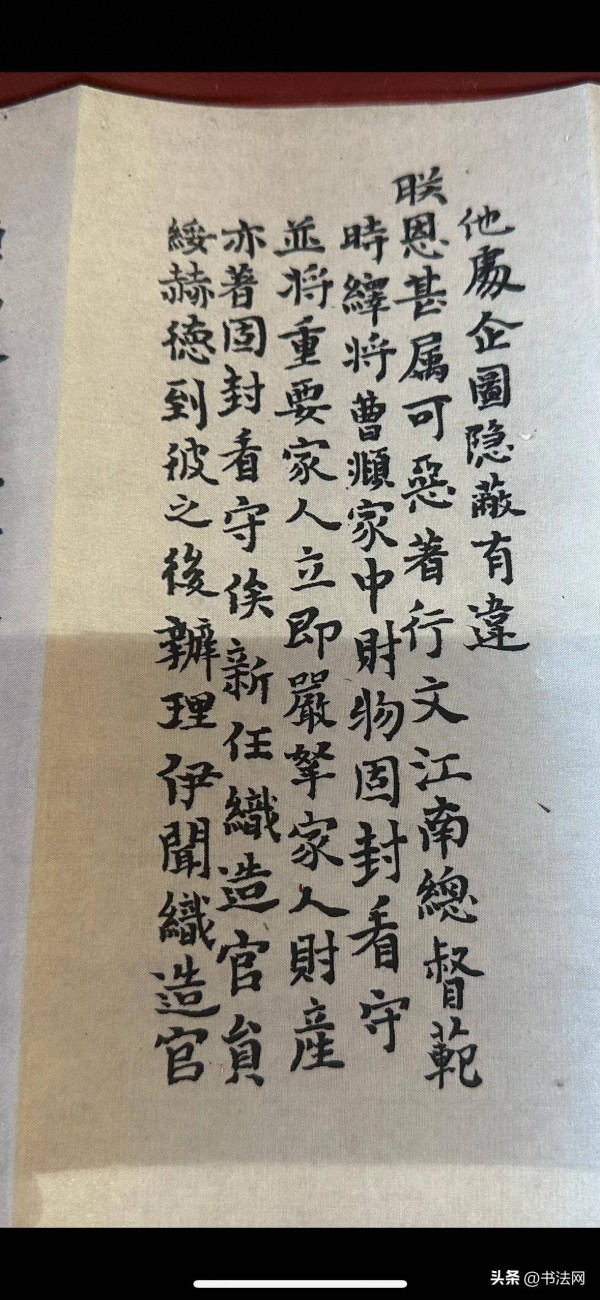 他處企圖隐蔽有違
朕恩甚属可惡著行文江南總督範
時繹將曹頫家中財物固封看守
並将重要家人立即嚴拏家人財産
亦著固封看守俟新任織造官員
綏赫德到彼之後辦理伊聞織造官
头条 @书法网